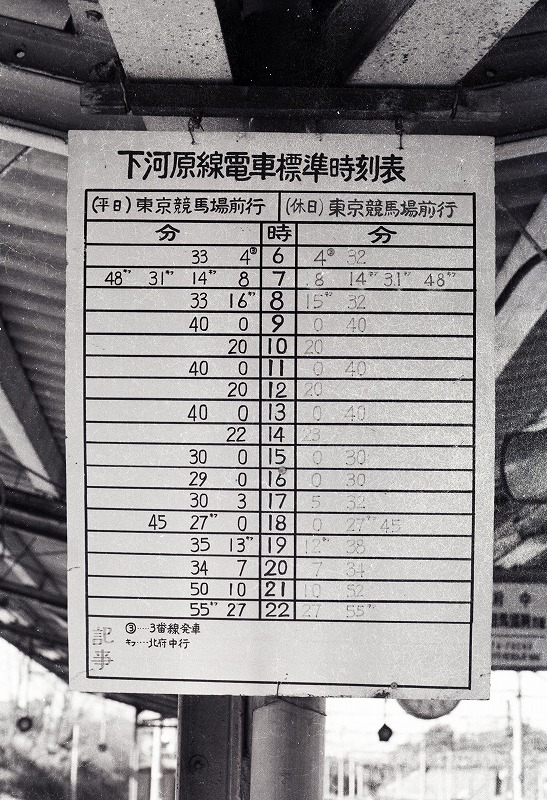 下河原線電車標準時刻表
(平日)東京競馬場前行 (休日)東京競馬場前行
分 時 分
33 4③ 6 4③ 32
48キフ 31キフ 14キフ 8 7 8 14キフ 31キフ 48キフ
33 16キフ 8 15キフ 32
40 0 9 0 40
20 10 20
40 0 11 0 40
20 12 20
40 0 13 0 40
22 14 23
30 0 15 0 30
29 0 16 0 30
30 3 17 5 32
45 27キフ 0 18 0 27キフ 45
35 13キフ 19 12キフ 38
34 7 20 7 34
50 10 21 10 52
55キフ 27 22 27 55キフ
記事
③……3番線発車
キフ……北府中行